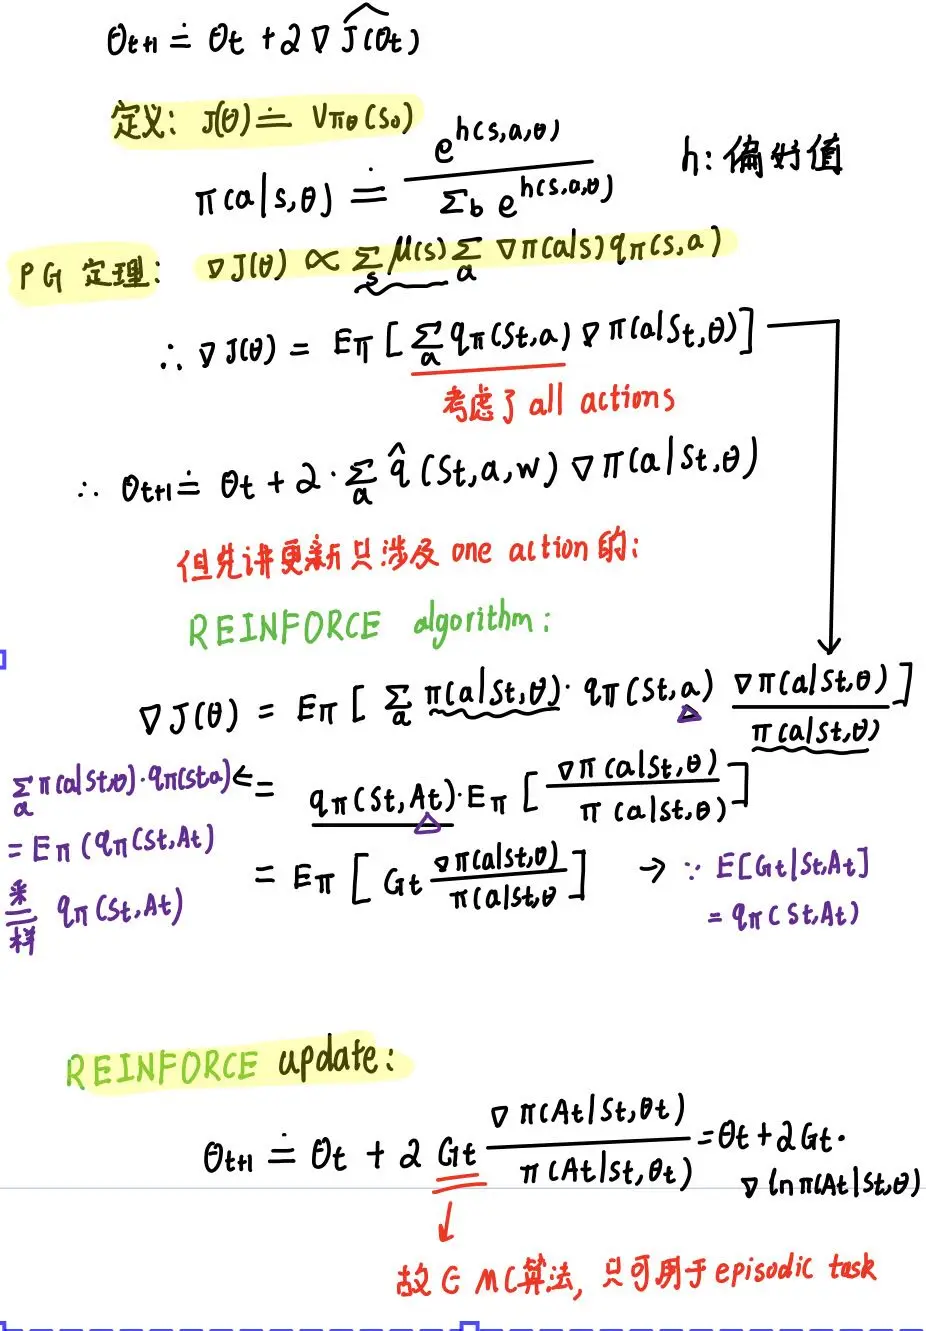 θt+1 ≐ θt + α ∇ Ĵ(θt)
定义: J(θ) ≐ Vπθ(S₀)
π(a|s,θ) ≐ e^h(s,a,θ) / Σb e^h(s,a,θ)  h: 偏好值
PG 定理: ∇J(θ) ∝ Σs μ(s) Σa ∇π(a|s) qπ(s,a)
∴ ∇J(θ) = Eπ [ Σa qπ(St,a) ∇π(a|St,θ) ]
考虑了 all actions
∴ θt+1 ≐ θt + α · Σa q̂ (St,a,w) ∇π(a|St,θ)
但先讲更新只涉及 one action 的:
REINFORCE algorithm:
∇J(θ) = Eπ [ Σa π(a|St,θ) · qπ(St,a) ∇π(a|St,θ) / π(a|St,θ) ]
Σa π(a|St,θ) · qπ(St,a) ← = qπ(St,At) · Eπ [ ∇π(a|St,θ) / π(a|St,θ) ]
= Eπ (qπ(St,At)
= Eπ [ Gt ∇π(a|St,θ) / π(a|St,θ ] → ∵ E[Gt|St,At]
采样 qπ(St,At)
= qπ(St,At)
REINFORCE update:
θt+1 ≐ θt + α Gt ∇π(At|St,θt) / π(At|St,θt) = θt + α Gt ·
∇ ln π(At|St,θ)
↓
故 ∈ MC算法, 只可用于 episodic task